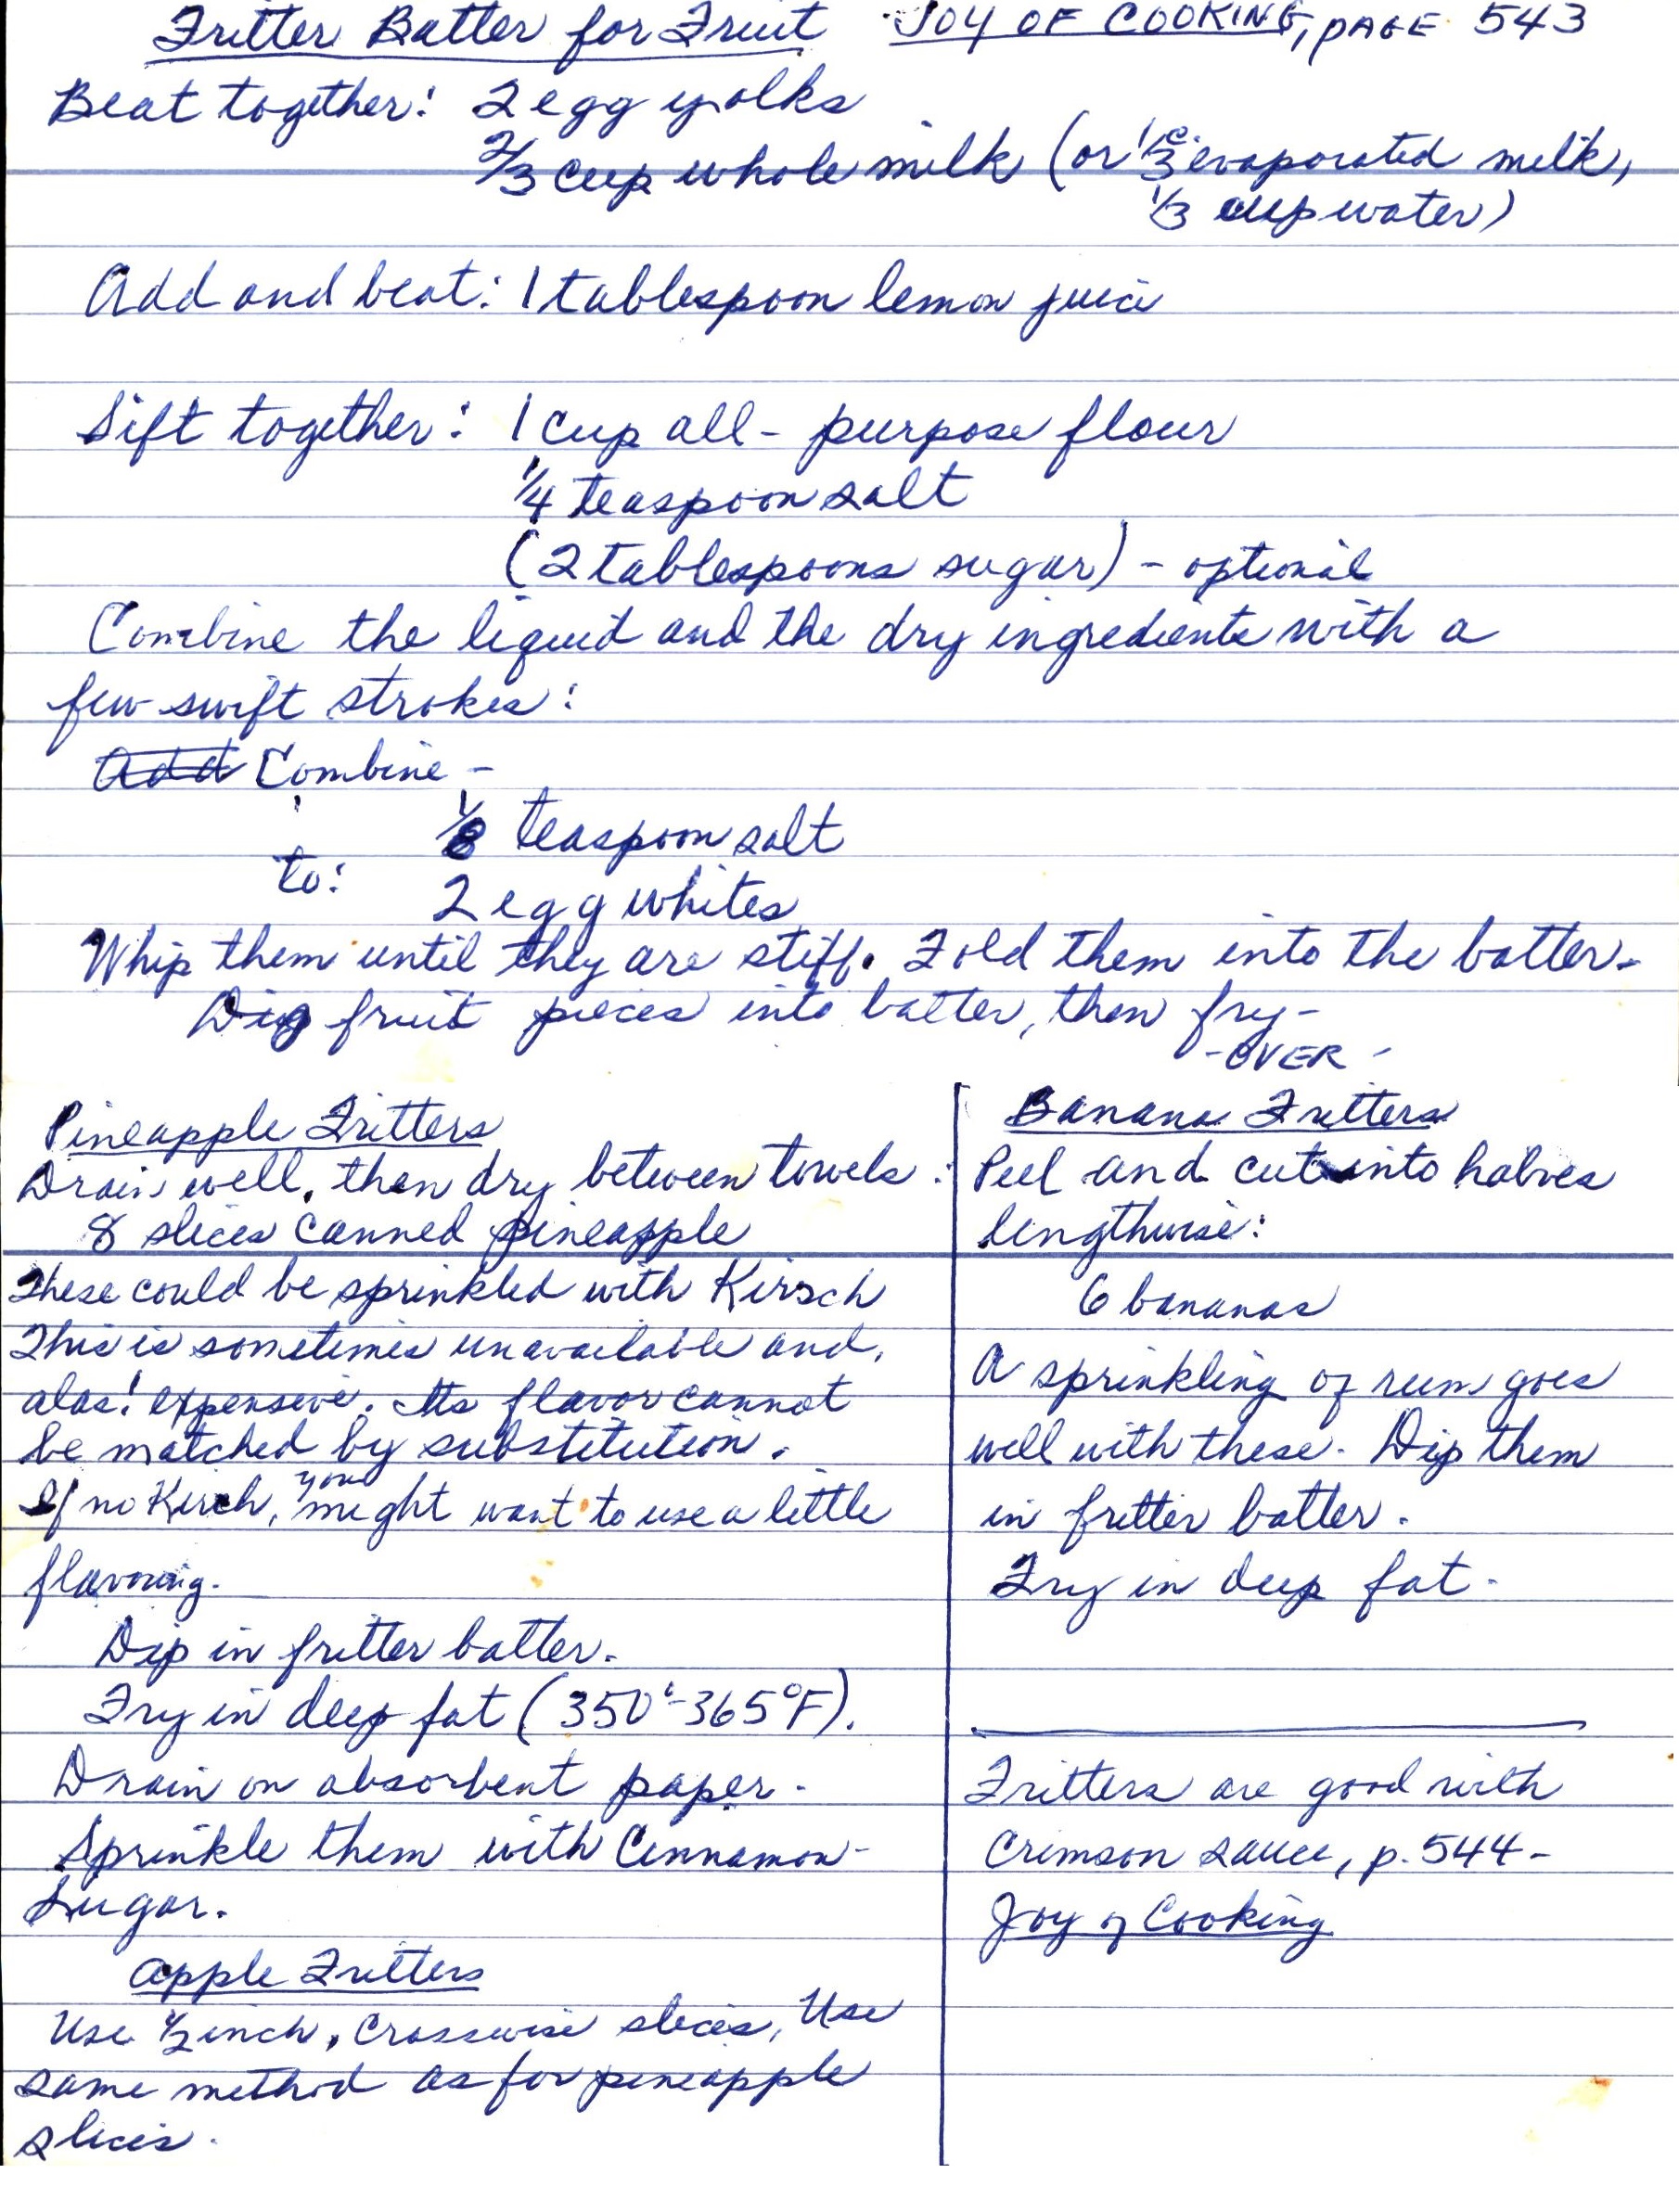 Fritter Batter for Fruit JOY OF COOKING, PAGE 543
Beat together: 2 egg yolks
2/3 cup whole milk (or 1/3 c. evaporated milk,
1/3 cup water)
Add and beat: 1 tablespoon lemon juice
Sift together: 1 cup all-purpose flour
1/4 teaspoon salt
(2 tablespoons sugar) - optional
Combine the liquid and the dry ingredients with a
few swift strokes:
Add Combine -
1/8 teaspoon salt
to:
2 egg whites
Whip them until they are stiff. Fold them into the batter.
Dip fruit pieces into batter, then fry -
- OVER -
Pineapple Fritters
Drain well, then dry between towels:
8 slices canned pineapple
These could be sprinkled with Kirsch
This is sometimes unavailable and,
alas! expensive. Its flavor cannot
be matched by substitution.
If no Kirch, you might want to use a little
flavoring.
Dip in fritter batter.
Fry in deep fat (350°-365°F).
Drain on absorbent paper.
Sprinkle them with Cinnamon-
Sugar.
Apple Fritters
Use 1/2 inch, Crosswise slices, Use
same method as for pineapple
slices.
Banana Fritters
Peel and cut into halves
lengthwise:
6 bananas
A sprinkling of rum goes
well with these. Dip them
in fritter batter.
Fry in deep fat.
Fritters are good with
Crimson sauce, p. 544 -
Joy of Cooking